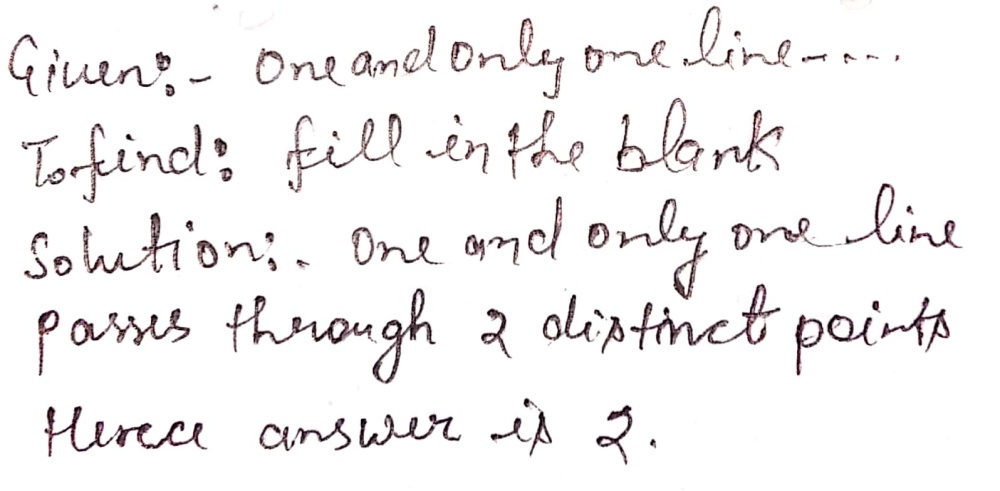 Given:- One and only one line-....
To find: fill in the blank
Solution:. One and only one line
passes through 2 distinct points
Hence answer is 2.